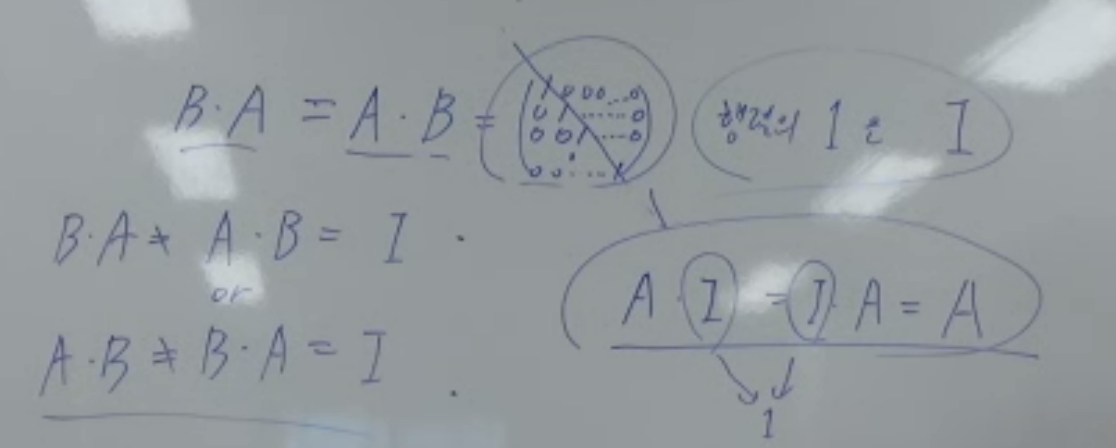 B·A = A·B = (1 0 0 0 ... 0
0 1 ...... 0
0 0 1 .... 0
0 0 ..... 1)
행렬의 1은 I
B·A ≠ A·B = I .
or
A·I = I·A = A
A·B ≠ B·A = I .
1